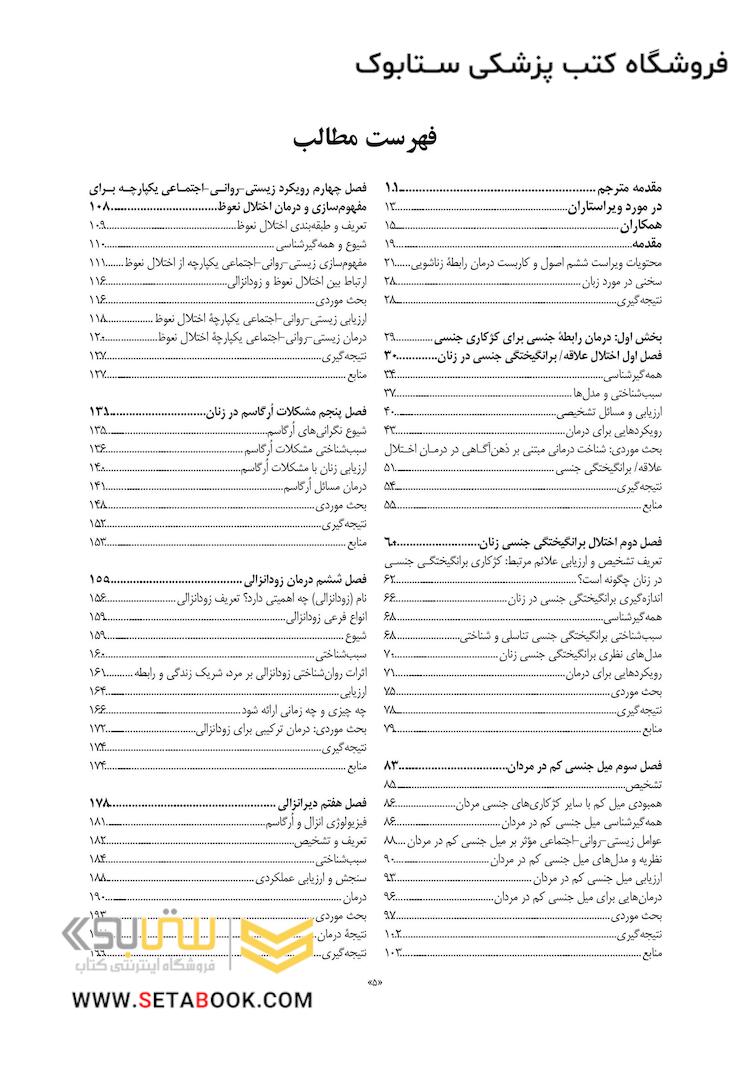 فروشگاه کتب پزشکی ستابوک
فهرست مطالب
مقدمه مترجم ........ ۱۱
در مورد ویراستاران ........ ۱۳
همکاران ........ ۱۵
مقدمه ........ ۱۹
محتویات ویراست ششم اصول و کاربست درمان رابطهٔ زناشویی ........ ۲۱
سخنی در مورد زبان ........ ۲۸
نتیجه‌گیری ........ ۲۸
بخش اول: درمان رابطهٔ جنسی برای کژکاری جنسی ........ ۲۹
فصل اول اختلال علاقه/ برانگیختگی جنسی در زنان ........ ۳۰
همه‌گیرشناسی ........ ۳۴
سبب‌شناختی و مدل‌ها ........ ۳۷
ارزیابی و مسائل تشخیصی ........ ۴۰
رویکردهایی برای درمان ........ ۴۳
بحث موردی: شناخت درمانی مبتنی بر ذهن‌آگاهی در درمـان اخـتلال
علاقه/ برانگیختگی جنسی ........ ۵۱
نتیجه‌گیری ........ ۵۴
منابع ........ ۵۵
فصل دوم اختلال برانگیختگی جنسی زنان ........ ۶۰
تعریف تشخیص و ارزیابی علائم مرتبط: کژکاری برانگیختگـی جنسـی
در زنان چگونه است؟ ........ ۶۲
اندازه‌گیری برانگیختگی جنسی در زنان ........ ۶۶
همه‌گیرشناسی ........ ۶۸
سبب‌شناختی برانگیختگی جنسی تناسلی و شناختی ........ ۶۸
مدل‌های نظری برانگیختگی جنسی زنان ........ ۷۰
رویکردهایی برای درمان ........ ۷۱
بحث موردی ........ ۷۵
نتیجه‌گیری ........ ۷۸
منابع ........ ۷۹
فصل سوم میل جنسی کم در مردان ........ ۸۳
تشخیص ........ ۸۵
همبودی میل کم با سایر کژکاری‌های جنسی مردان ........ ۸۶
همه‌گیرشناسی میل جنسی کم در مردان ........ ۸۶
عوامل زیستی-روانی-اجتماعی مؤثر بر میل جنسی کم در مردان ........ ۸۸
نظریه و مدل‌های میل جنسی کم در مردان ........ ۹۰
ارزیابی میل جنسی کم در مردان ........ ۹۳
درمان‌هایی برای میل جنسی کم در مردان ........ ۹۶
بحث موردی ........ ۹۷
نتیجه‌گیری ........ ۱۰۲
منابع ........ ۱۰۳
فصل چهارم رویکرد زیستی-روانـی-اجتمـاعی یکپارچـه بـرای
مفهوم‌سازی و درمان اختلال نعوظ ........ ۱۰۸
تعریف و طبقه‌بندی اختلال نعوظ ........ ۱۰۹
شیوع و همه‌گیرشناسی ........ ۱۱۰
مفهوم‌سازی زیستی-روانی-اجتماعی یکپارچه از اختلال نعوظ ........ ۱۱۱
ارتباط بین اختلال نعوظ و زودانزالی ........ ۱۱۶
بحث موردی ........ ۱۱۶
ارزیابی زیستی-روانی-اجتماعی یکپارچهٔ اختلال نعوظ ........ ۱۱۸
درمان زیستی-روانی-اجتماعی یکپارچهٔ اختلال نعوظ ........ ۱۲۰
نتیجه‌گیری ........ ۱۲۷
منابع ........ ۱۲۷
فصل پنجم مشکلات اُرگاسم در زنان ........ ۱۳۱
شیوع نگرانی‌های اُرگاسم ........ ۱۳۵
سبب‌شناختی مشکلات اُرگاسم ........ ۱۳۶
ارزیابی زنان با مشکلات اُرگاسم ........ ۱۴۰
درمان مسائل اُرگاسم ........ ۱۴۱
بحث موردی ........ ۱۴۸
نتیجه‌گیری ........ ۱۵۲
منابع ........ ۱۵۳
فصل ششم درمان زودانزالی ........ ۱۵۵
نام (زودانزالی) چه اهمیتی دارد؟ تعریف زودانزالی ........ ۱۵۶
انواع فرعی زودانزالی ........ ۱۵۹
شیوع ........ ۱۵۹
سبب‌شناختی ........ ۱۶۰
اثرات روان‌شناختی زودانزالی بر مرد، شریک زندگی و رابطه ........ ۱۶۱
ارزیابی ........ ۱۶۴
چه چیزی و چه زمانی ارائه شود ........ ۱۶۶
بحث موردی: درمان ترکیبی برای زودانزالی ........ ۱۷۲
نتیجه‌گیری ........ ۱۷۴
منابع ........ ۱۷۴
فصل هفتم دیرانزالی ........ ۱۷۸
فیزیولوژی انزال و اُرگاسم ........ ۱۸۱
تعریف و تشخیص ........ ۱۸۲
سبب‌شناختی ........ ۱۸۴
سنجش و ارزیابی عملکردی ........ ۱۸۸
درمان ........ ۱۹۰
بحث موردی ........ ۱۹۳
نتیجهٔ درمان ........
نتیجه‌گیری ........
«۵»
ستابوک
فروشگاه اینترنتی کتاب
WWW.SETABOOK.COM